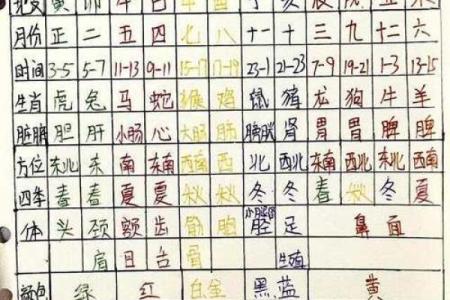 地支 寅 卯 午 巳 申 酉 子 亥 辰 戌 丑 未
月份 正 二 五 四 七 八 十一 十 三 九 十二 六
时间 3-5 5-7 11-13 9-11 15-17 17-19 23-1 21-23 7-9 19-21 1-3 13-15
生肖 虎 兔 马 蛇 猴 鸡 鼠 猪 龙 狗 牛 羊
脏腑 胆 肝 小肠 心 大肠 肺 膀胱 肾 胃 胃 脾 脾
方位 东北 东 南 东南 西南 西 北 西北 东南 西北 东北 西南
四季 春 春 夏 夏 秋 秋 冬 冬 春 秋 冬 夏
体 头 颈 额 齿 筋 胸 胫 足 鼻 面
肩 目 舌 骨 生殖
颜色 绿 红 白金 黑 蓝 黄